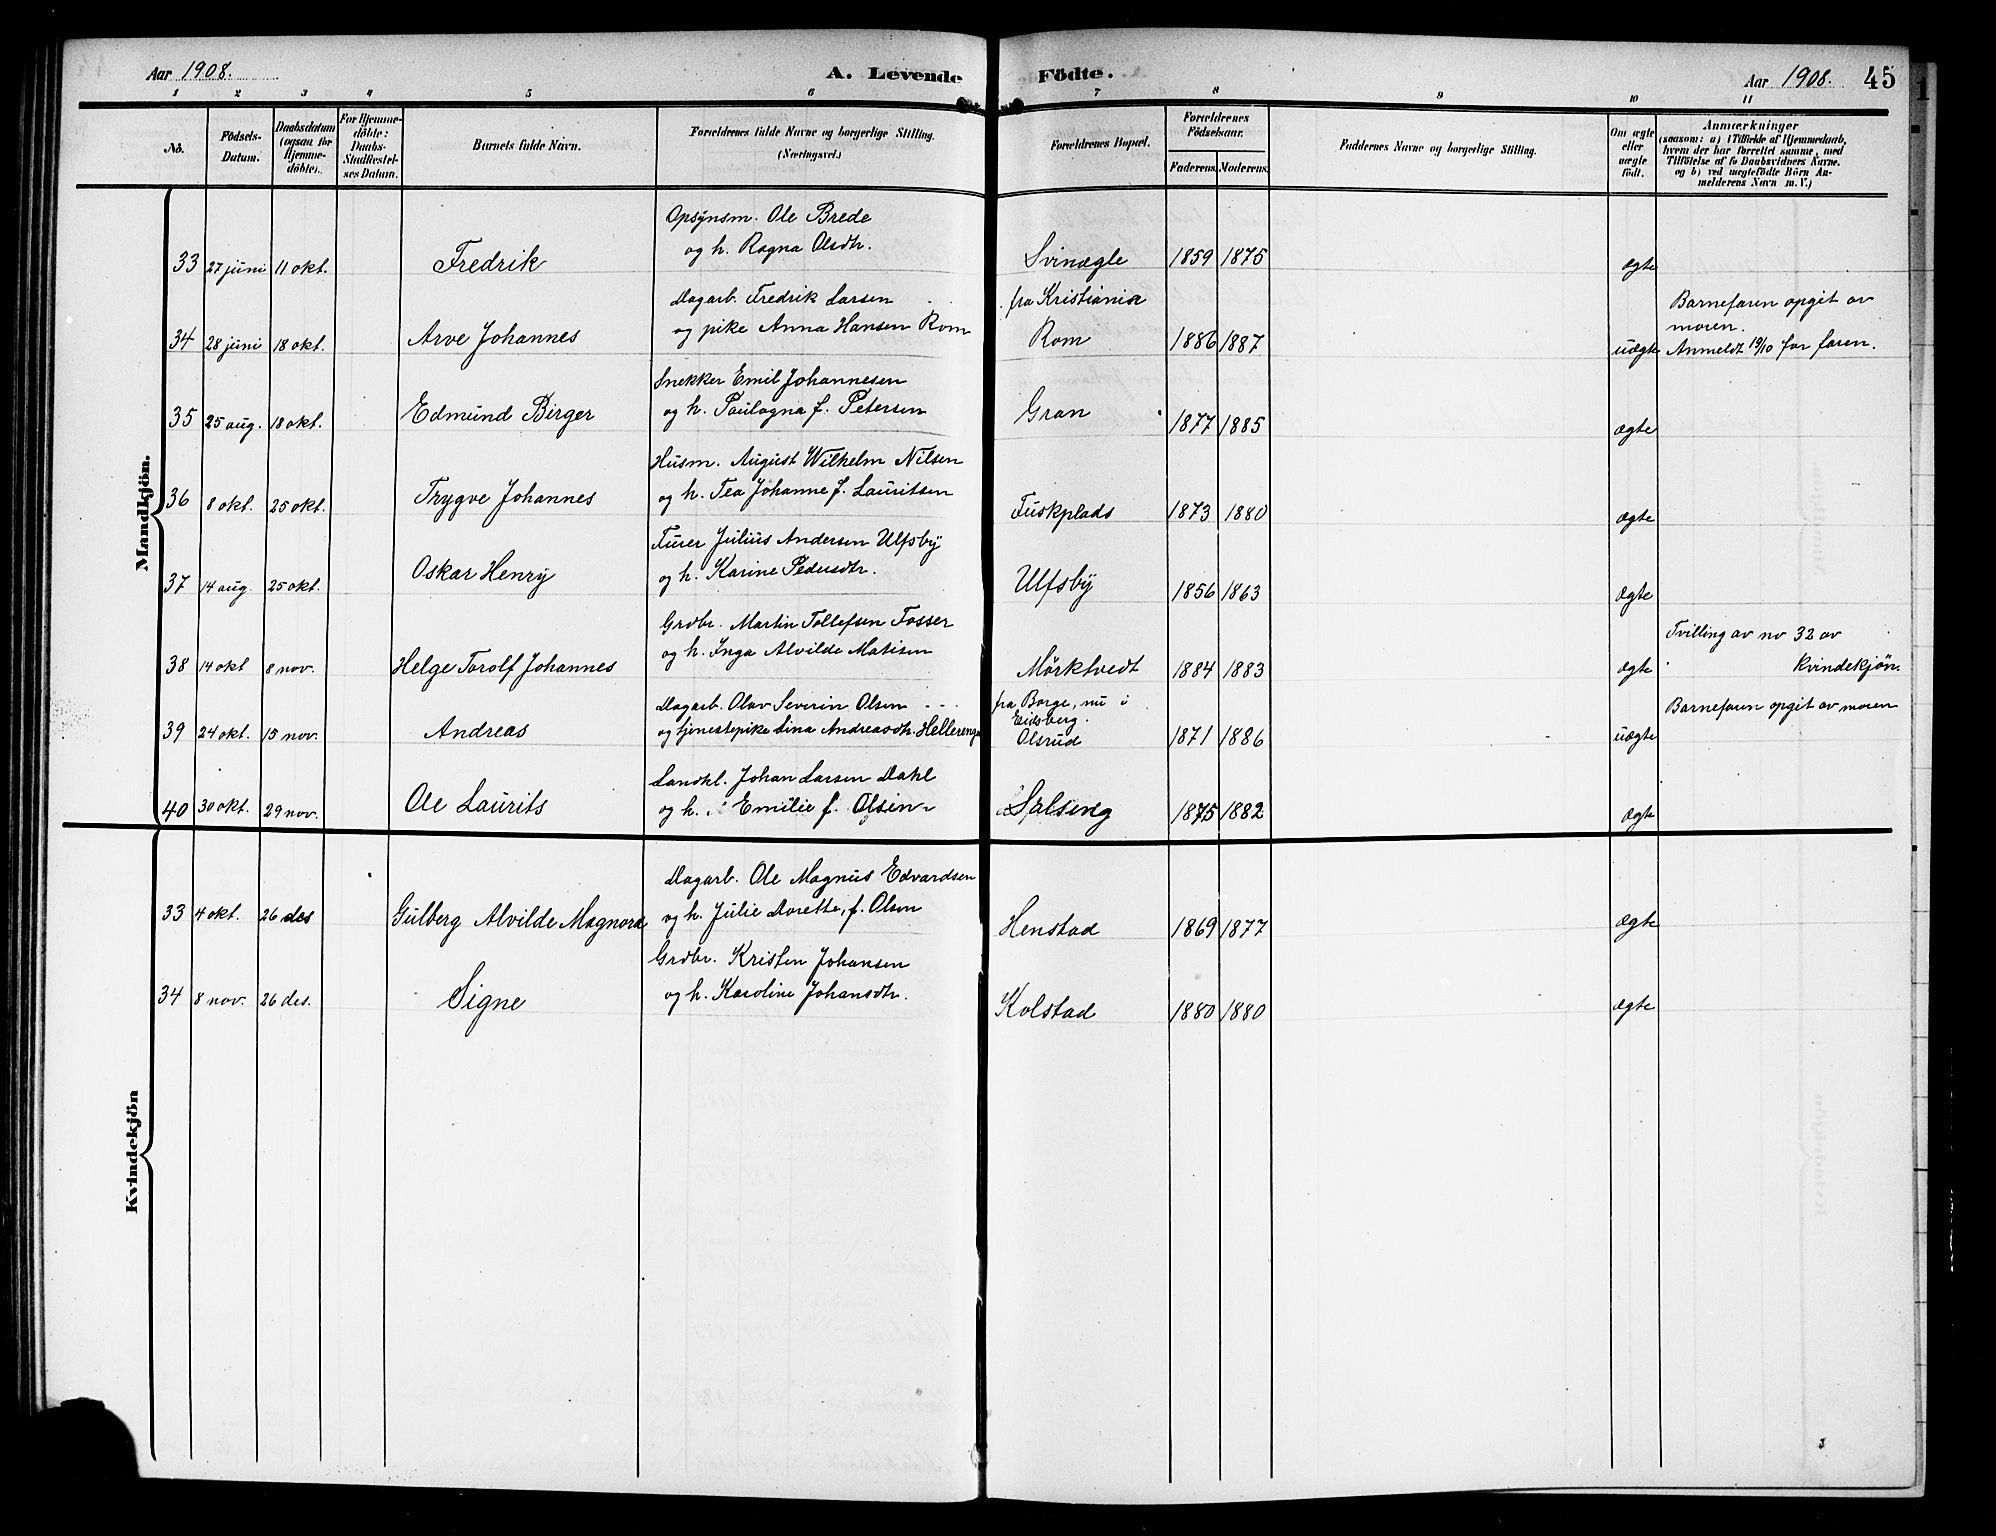 Aar 1908. A. Levende Födte. Aar 1908. 45
1 2 3 4 5 6 7 8 9 10 11
No. Födsels-Datum. Daabsdatum (ogsaa for Hjemme-döbte). For Hjemme-döbte: Daabs-Stadfæstel-ses Datum. Barnets fulde Navn. Forældrenes fulde Navne og borgerlige Stilling. (Næringsvei.) Forældrenes Bopæl. Forældrenes Födselsaar. Faderens. Moderens. Faddernes Navne og borgerlige Stilling. Om ægte eller uægte födt. Anmærkninger (saasom: a) i Tilfælde af Hjemmedaab, hvem der har forrettet samme, med Tilföielse af to Daabsvidners Navne. og b) ved uægtefödte Börn An-melderens Navn m. V.)
Mandkjön.
Opsynsm. Ole Brede
33 27 juni 11 okt. Fredrik og h. Ragna Olsdtr. Svinægle 1859 1875 ægte
Dagarb. Fredrik Larsen fra Kristiania Barnefaren opgit av
34 28 juni 18 okt. Arve Johannes og pike Anna Hansen Rom Rom 1886 1887 uægte moren.
Anmeldt 19/10 for faren.
Snekker Emil Johannesen
35 25 aug. 18 okt. Edmund Birger og h. Paulagna f. Petersen Gran 1877 1885 ægte
Husm. August Wilhelm Nilsen
36 8 okt. 25 okt. Trygve Johannes og h. Tea Johanne f. Lauritsen Fuskplads 1873 1880 ægte
Furer Julius Andersen Ulfsby
37 14 aug. 25 okt. Oskar Henry og h. Karine Pedersdtr. Ulfsby 1856 1863 ægte
Grdbr. Martin Tollefsen Fosser Tvilling av no 32 av
38 14 okt 8 nov. Helge Torolf Johannes og h. Inga Alvilde Matisen Mörktvedt 1884 1883 ægte kvindekjön.
Dagarb. Olav Severin Olsen fra Borge, nu i Eidsberg. Barnefaren opgit av moren
39 24 okt. 15 nov. Andreas og tjenestepike Lina Andreasdtr. Hellerenga Olsrud 1871 1886 uægte
Landhl. Johan Larsen Dahl
40 30 okt. 29 nov. Ole Laurits og h. Emilie f. Olsen Salseng 1875 1882 ægte
Kvindekjön
Dagarb. Ole Magnus Edvardsen
33 4 okt. 26 des Gulberg Alvilde Magnora og h. Julie Dorette, f. Olsen Henstad 1869 1877 ægte
Grdbr. Kristen Johansen
34 8 nov. 26 des. Signe og h. Karoline Johansdtr. Kolstad 1880 1880 ægte